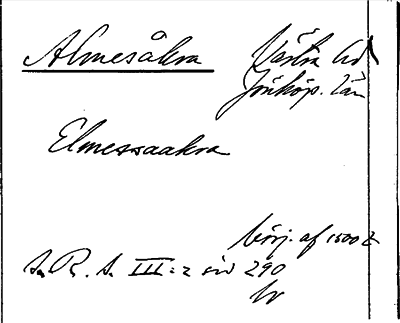 Almesåkra Västra hd
Jönköp. län
Elmessaakra
börj. af 1500 t
S. R. S. III:2 sid 290